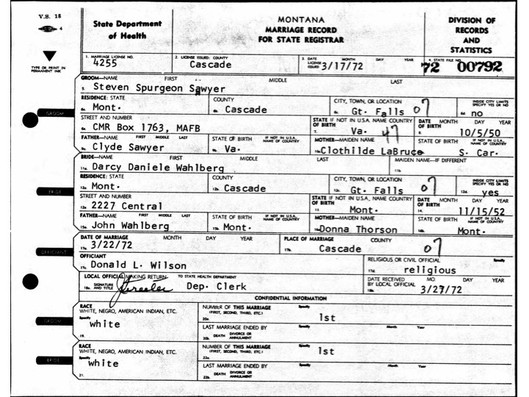 V.S. 18
State Department of Health
MONTANA
MARRIAGE RECORD
FOR STATE REGISTRAR
DIVISION OF RECORDS AND STATISTICS
TYPE OR PRINT IN PERMANENT INK
1. MARRIAGE LICENSE NO. 4255
2. LICENSE ISSUED: COUNTY Cascade
3. DATE LICENSE ISSUED MONTH DAY YEAR 3/17/72
STATE FILE NO. 72 00792
GROOM—NAME FIRST MIDDLE LAST
Steven Spurgeon Sawyer
RESIDENCE: STATE Mont.
COUNTY Cascade
CITY, TOWN, OR LOCATION Gt. Falls 07
INSIDE CITY LIMITS no
STREET AND NUMBER CMR Box 1763, MAFB
STATE OF BIRTH IF NOT IN U.S.A. NAME COUNTRY Va. 47
DATE OF BIRTH MONTH DAY YEAR 10/5/50
FATHER—NAME FIRST MIDDLE LAST Clyde Sawyer
STATE OF BIRTH IF NOT IN U.S.A. NAME COUNTRY Va.
MOTHER—MAIDEN NAME Clothilde LaBruce
STATE OF BIRTH IF NOT IN U.S.A. NAME COUNTRY S. Car.
BRIDE—NAME FIRST MIDDLE LAST MAIDEN NAME—IF DIFFERENT
Darcy Daniele Wahlberg
RESIDENCE: STATE Mont.
COUNTY Cascade
CITY, TOWN, OR LOCATION Gt. Falls 07
INSIDE CITY LIMITS yes
STREET AND NUMBER 2227 Central
STATE OF BIRTH IF NOT IN U.S.A. NAME COUNTRY Mont.
DATE OF BIRTH MONTH DAY YEAR 11/15/52
FATHER—NAME FIRST MIDDLE LAST John Wahlberg
STATE OF BIRTH IF NOT IN U.S.A. NAME COUNTRY Mont.
MOTHER—MAIDEN NAME Donna Thorson
STATE OF BIRTH IF NOT IN U.S.A. NAME COUNTRY Mont.
DATE OF MARRIAGE MONTH DAY YEAR 3/22/72
PLACE OF MARRIAGE COUNTY Cascade 07
OFFICIANT Donald L. Wilson
RELIGIOUS OR CIVIL OFFICIAL religious
LOCAL OFFICIAL MAKING RETURN TO STATE HEALTH DEPARTMENT
SIGNATURE AND TITLE Dep. Clerk
DATE RECEIVED BY LOCAL OFFICIAL MO DAY YEAR 3/27/72
CONFIDENTIAL INFORMATION
RACE WHITE, NEGRO, AMERICAN INDIAN, ETC. Specify white
NUMBER OF THIS MARRIAGE (FIRST, SECOND, THIRD, ETC.) Specify 1st
LAST MARRIAGE ENDED BY DEATH DIVORCE OR ANNULMENT Specify Month Year
RACE WHITE, NEGRO, AMERICAN INDIAN, ETC. Specify white
NUMBER OF THIS MARRIAGE (FIRST, SECOND, THIRD, ETC.) Specify 1st
LAST MARRIAGE ENDED BY DEATH DIVORCE OR ANNULMENT Specify Month Year